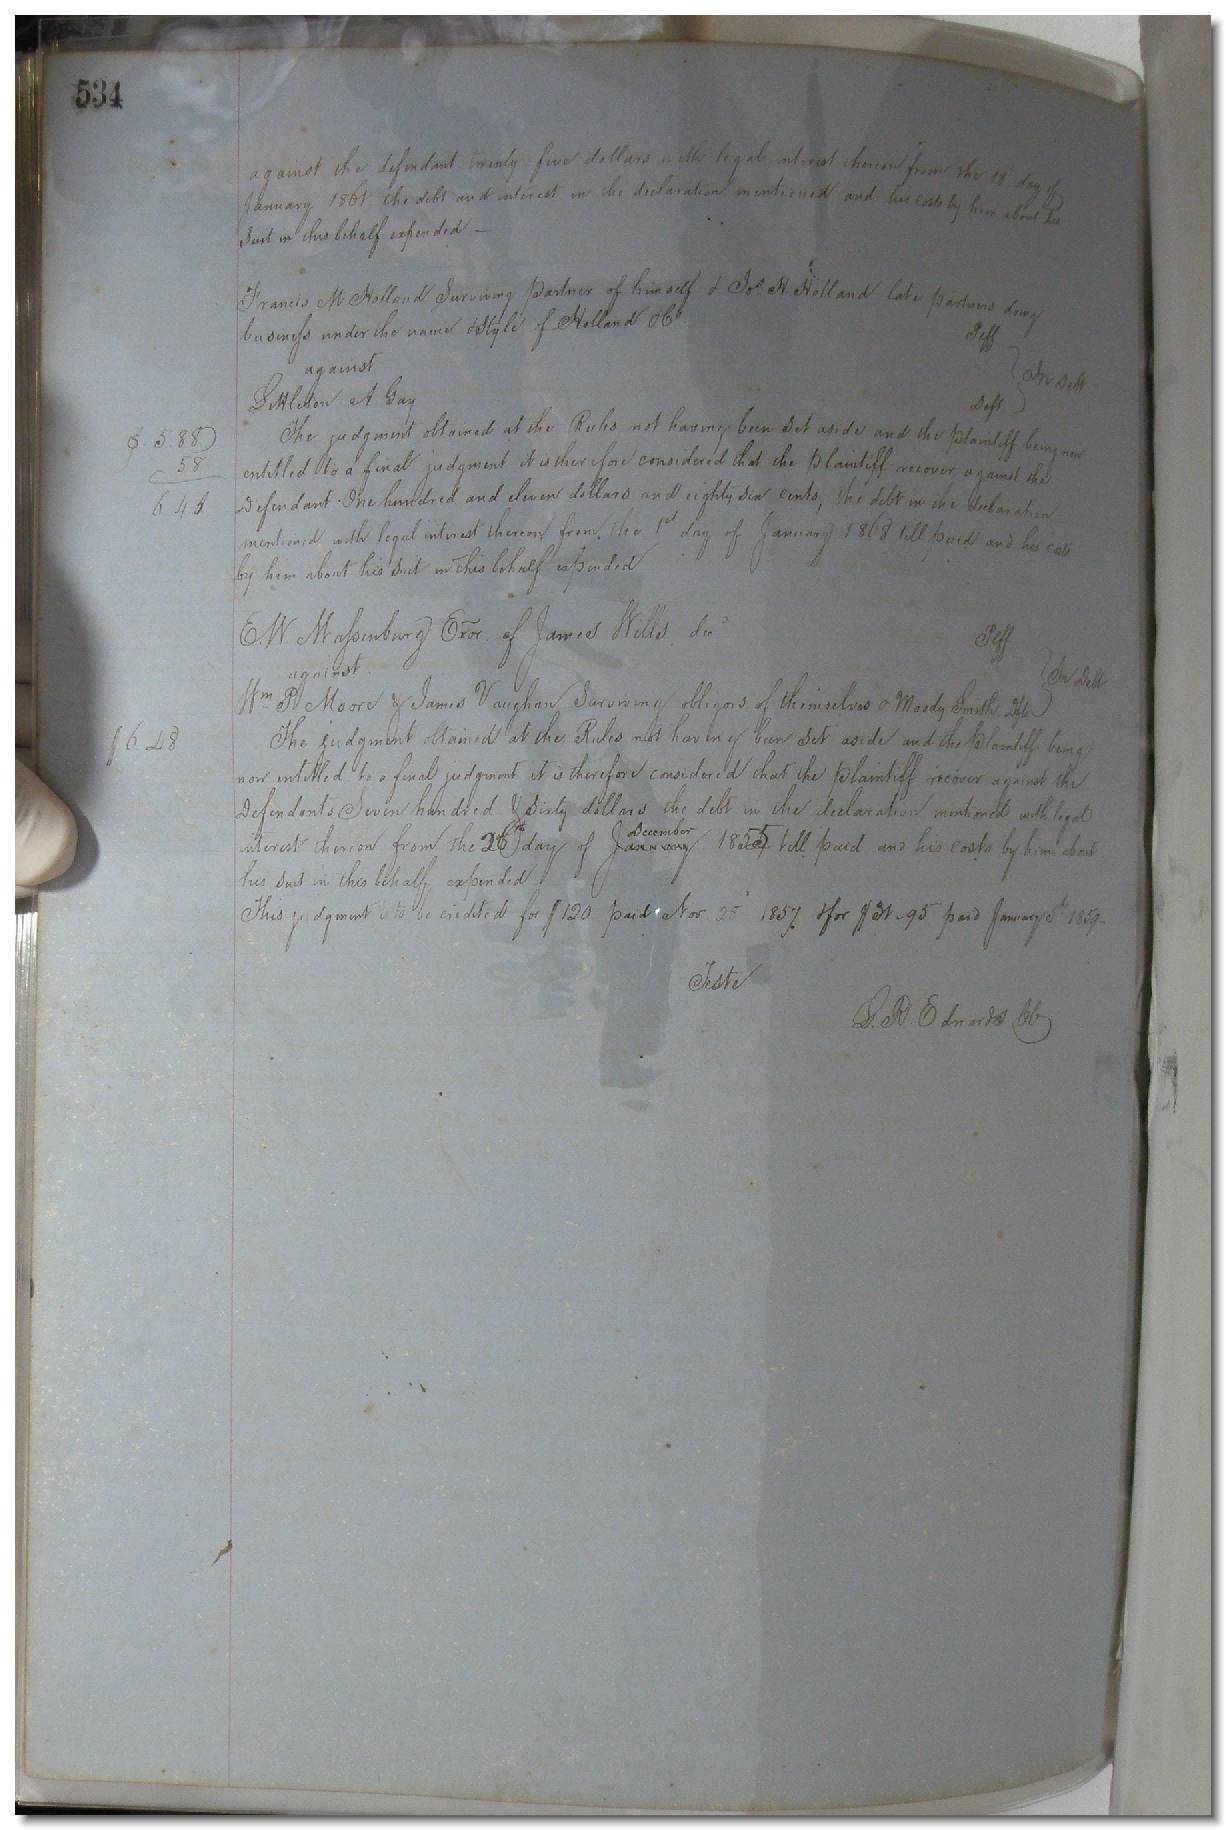 534
against the defendant twenty five dollars with legal interest thereon from the 18 day of
January 1861 the debt and interest in the declaration mentioned and his costs by him about his
Suit in this behalf expended —
Francis M Holland Surviving partner of himself & Jos. H. Holland late partners doing
business under the name & Style of Holland & Co
Plff
against
In debt
Littleton A Gay
Deft
The judgment obtained at the Rules not having been set aside and the plaintiff being now
$ 5 88
entitled to a final judgment it is therefore considered that the plaintiff recover against the
58
Defendant One hundred and eleven dollars and eighty six cents, the debt in the declaration
6 4
mentioned with legal interest thereon from the 1st day of January 1868 till paid and his costs
by him about his suit in this behalf expended
E. W. Massenburg Exor. of James Wills, dec
Plff
against
In Debt
Wm P Moore & James Vaughan Surviving obligors of themselves & Moody Smith Dfts
$ 6 28
The judgment obtained at the Rules not having been set aside and the plaintiff being
now entitled to a final judgment it is therefore considered that the plaintiff recover against the
Defendants Seven hundred & sixty dollars the debt in the declaration mentioned with legal
interest thereon from the 26th day of January December 1855 till paid and his costs by him about
his suit in this behalf expended
This judgment is to be credited for $120 paid Nov 25 1857 & for $ 31.95 paid January 1859
Teste
L. R. Edwards CC